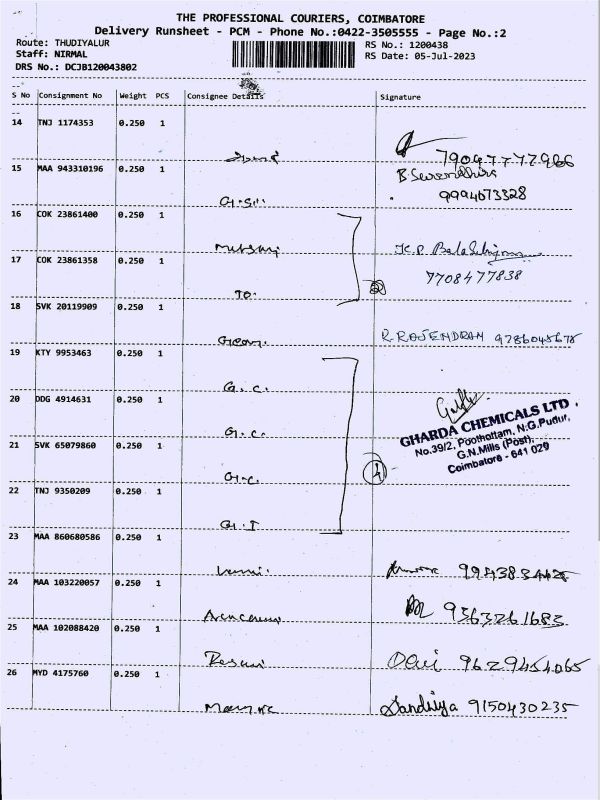 THE PROFESSIONAL COURIERS, COIMBATORE
Delivery Runsheet - PCM - Phone No.:0422-3505555 - Page No.:2
Route: THUDIYALUR
RS No.: 1200438
Staff: NIRMAL
RS Date: 05-Jul-2023
DRS No.: DCJB120043802
S No Consignment No Weight PCS Consignee Details Signature
14 TNJ 1174353 0.250 1
15 MAA 943310196 0.250 1
9994673328
16 COK 23861400 0.250 1
17 COK 23861358 0.250 1
7708477838
TO.
2
18 SVK 20119909 0.250 1
R. RAJENDRAN 9286045678
19 KTY 9953463 0.250 1
G.C.
20 DDG 4914631 0.250 1
G.C.
GHARDA CHEMICALS LTD.
No.39/2, Poothottam, N.G.Pudur,
G.N.Mills (Post),
Coimbatore - 641 029
21 SVK 65079860 0.250 1
G.C.
4
22 TNJ 9350209 0.250 1
G.I
23 MAA 860680586 0.250 1
24 MAA 103220057 0.250 1
9363261683
25 MAA 102088420 0.250 1
9629454065
26 MYD 4175760 0.250 1
Sandhiya 9150430235